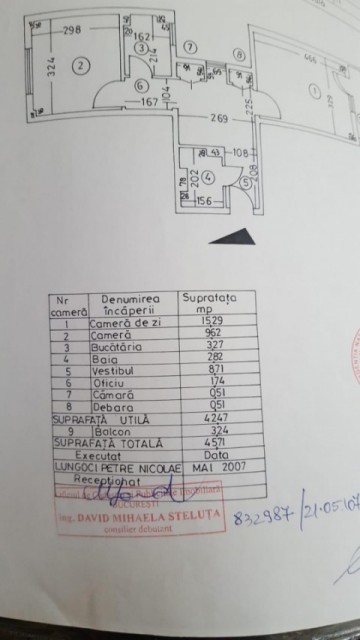 298
324
2
162
3
214
6
167
104
7
8
269
225
466
1
329
108
208
202
4
5
78
156
Nr cameră Denumirea încăperii Suprafața mp
1 Cameră de zi 15,29
2 Cameră 9,62
3 Bucătăria 3,27
4 Baia 2,82
5 Vestibul 8,71
6 Oficiu 1,74
7 Cămară 0,51
8 Debara 0,51
SUPRAFAȚĂ UTILĂ 42,47
9 Balcon 3,24
SUPRAFAȚĂ TOTALĂ 45,71
Executat Data
LUNGOCI PETRE NICOLAE MAI 2007
Recepționat
BUCUREȘTI
ing. DAVID MIHAELA STELUȚA
consilier debutant
832987/21.05.107